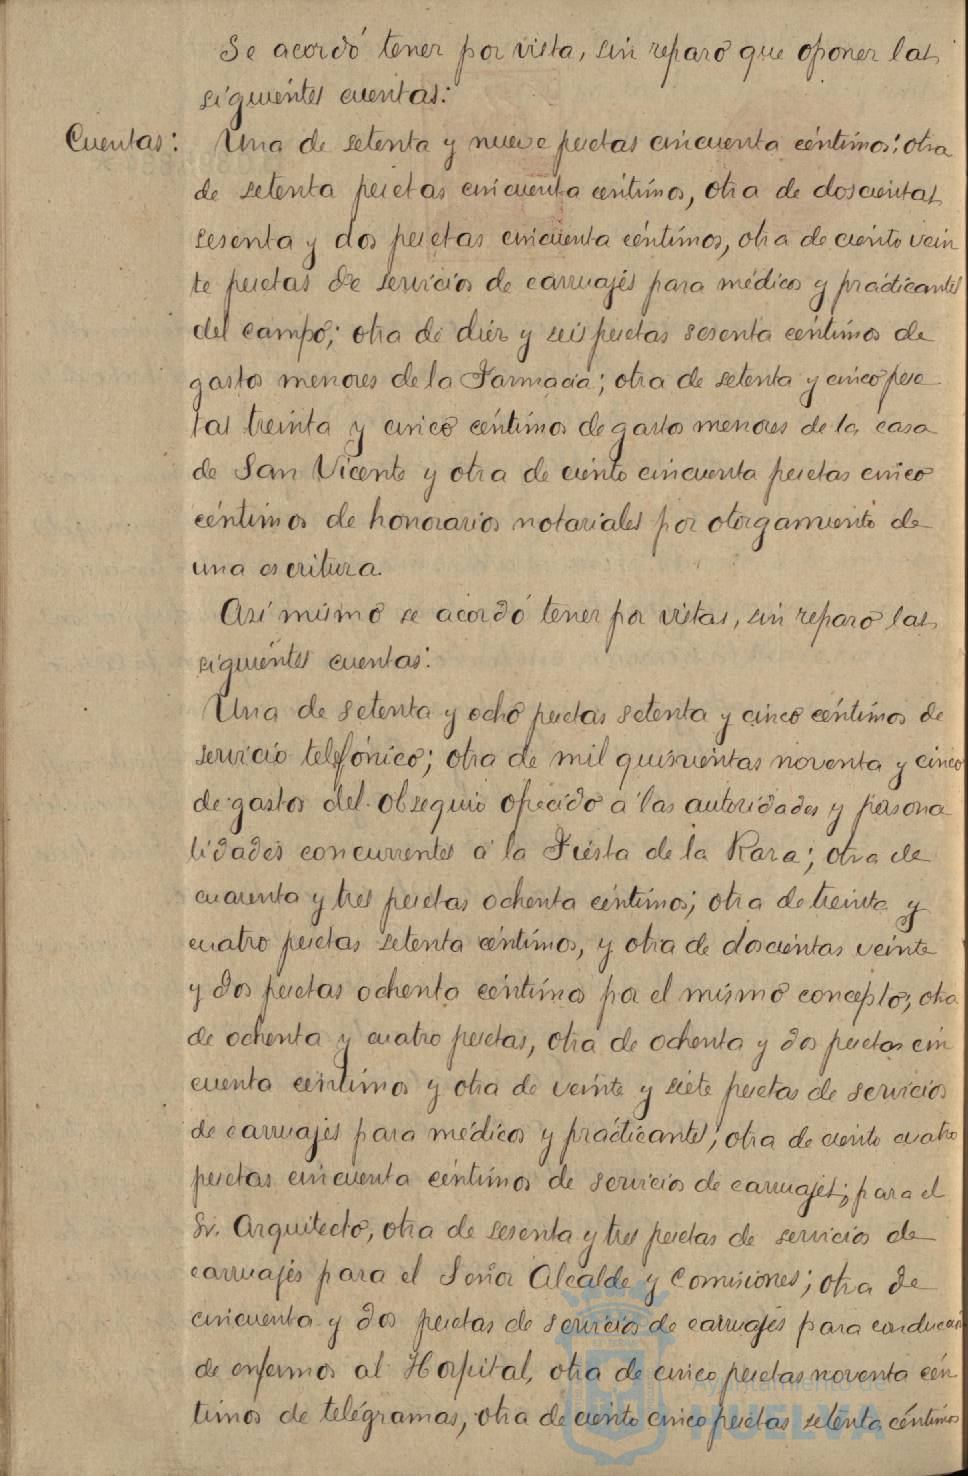 Se acordó tener por vista, sin reparo que oponer las
siguientes cuentas:
Cuentas: Una de setenta y nueve pesetas cincuenta céntimos; otra
de setenta pesetas cincuenta céntimos, otra de doscientas
sesenta y dos pesetas cincuenta céntimos, otra de ciento vein
te pesetas de servicios de carruajes para médicos y practicantes
del campo; otra de diez y seis pesetas sesenta céntimos de
gastos menores de la Farmacia; otra de setenta y cinco pese
tas treinta y cinco céntimos de gastos menores de la casa
de San Vicente y otra de ciento cincuenta pesetas cinco
céntimos de honorarios notariales por otorgamiento de
una escritura.
Así mismo se acordó tener por vistas, sin reparo las
siguientes cuentas:
Una de setenta y ocho pesetas setenta y cinco céntimos de
servicio telefónico; otra de mil quinientas noventa y cinco
de gastos del obsequio ofrecido a las autoridades y persona
lidades concurrentes a la Fiesta de la Raza; otra de
cuarenta y tres pesetas ochenta céntimos; otra de treinta y
cuatro pesetas setenta céntimos, y otra de doscientas veinte
y dos pesetas ochenta céntimos por el mismo concepto; otra
de ochenta y cuatro pesetas, otra de ochenta y dos pesetas cin
cuenta céntimos y otra de veinte y siete pesetas de servicios
de carruajes para médicos y practicantes; otra de ciento cuatro
pesetas cincuenta céntimos de servicios de carruajes; para el
Sr. Arquitecto, otra de sesenta y tres pesetas de servicios de
carruajes para el Señor Alcalde y Comisiones; otra de
cincuenta y dos pesetas de servicios de carruajes para conducción
de enfermos al Hospital, otra de cinco pesetas noventa cén
timos de telégramas, otra de ciento cinco pesetas setenta céntimos
Ayuntamiento de
HUELVA